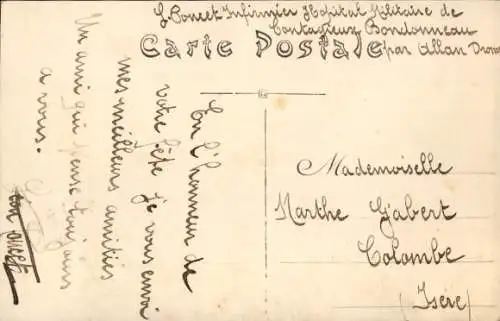 Poncet Infirmier Hopital Militaire de
Contagieux Bondonneau
par Allan Drome
Carte Postale
En l'honneur de
votre fête je vous envoi
mes meilleurs amitiés
Un ami qui pense toujours
a vous.
Mademoiselle
Marthe Gabert
Colombe
(Isère)